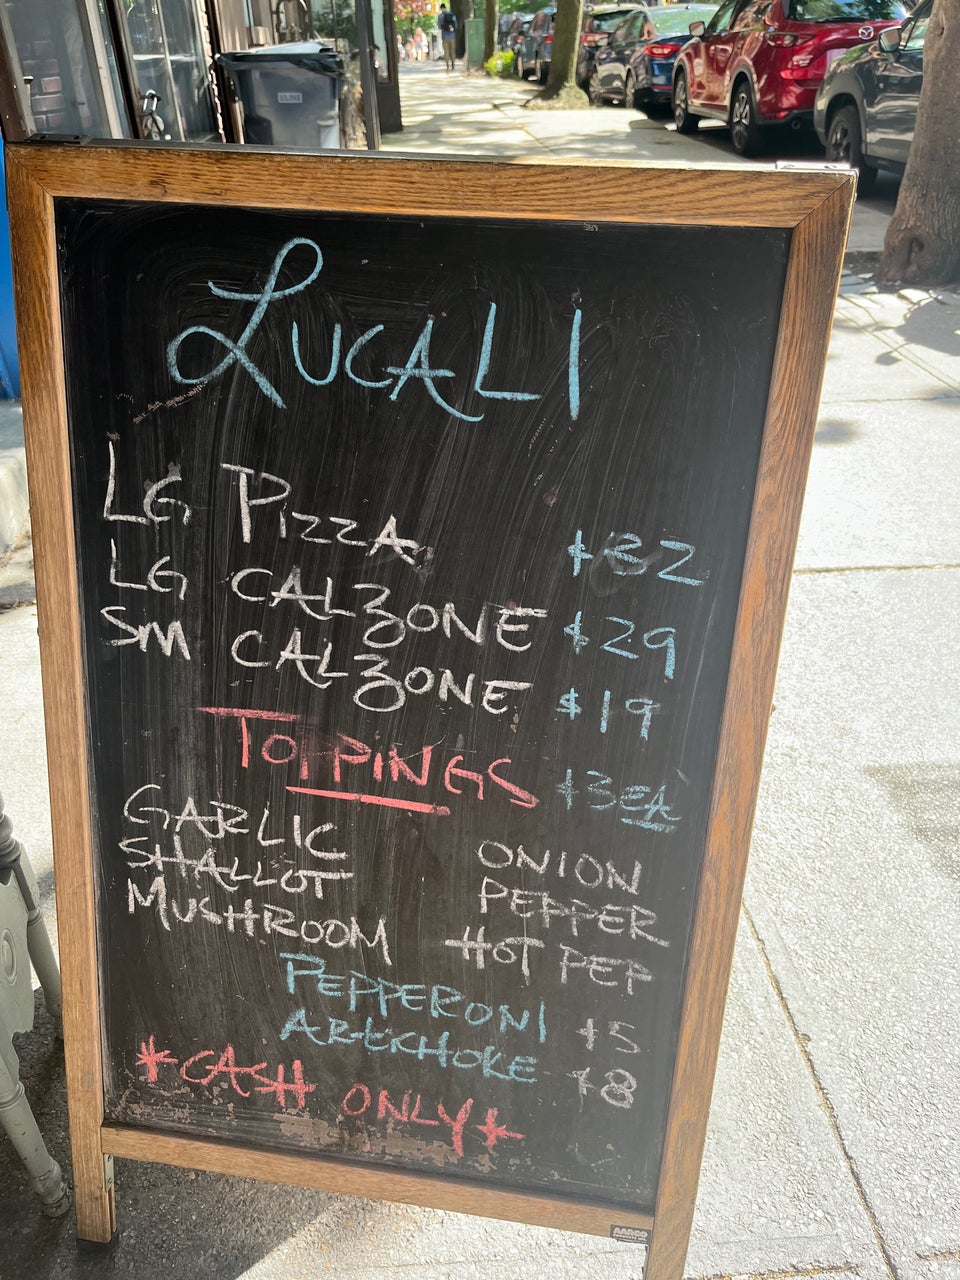 ULINE
LUCALI
LG PIZZA $32
LG CALZONE $29
SM CALZONE $19
TOPPINGS $3EA
GARLIC ONION
SHALLOT PEPPER
MUSHROOM HOT PEP
PEPPERONI $5
ARTICHOKE $8
*CASH ONLY*